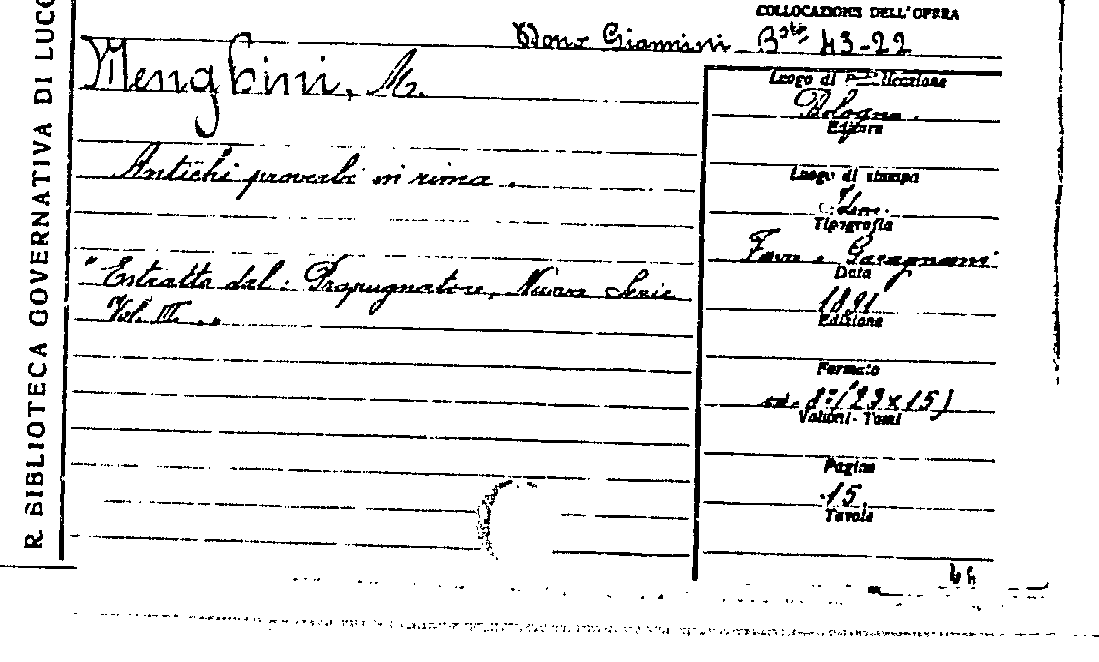 R. BIBLIOTECA GOVERNATIVA DI LUCC
COLLOCAZIONE DELL'OPERA
Dono Giannini Bta 43-22
Menghini, M.
Antichi proverbi in rima.
"Estratto dal: Propugnatore, Nuova Serie
Vol. III. "
Luogo di pubblicazione
Bologna.
Editore
Luogo di stampa
Idem.
Tipografia
Fava e Garagnani
Data
1891
Edizione
Formato
8º (23x15)
Volumi - Tomi
Pagine
15
Tavole